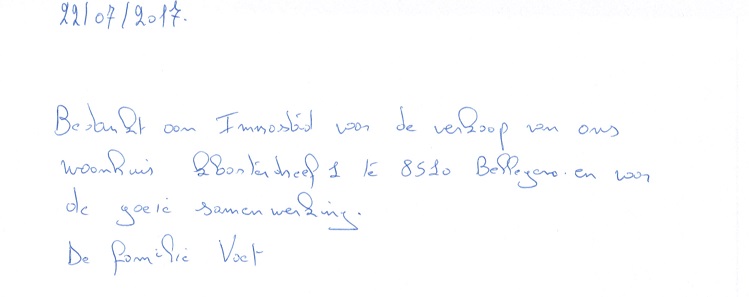 22/07/2017.
Bedankt aan Immostad voor de verkoop van ons
woonhuis Kloosterdreef 1 te 8510 Bellegem. en voor
de goeie samenwerking.
De familie Voet